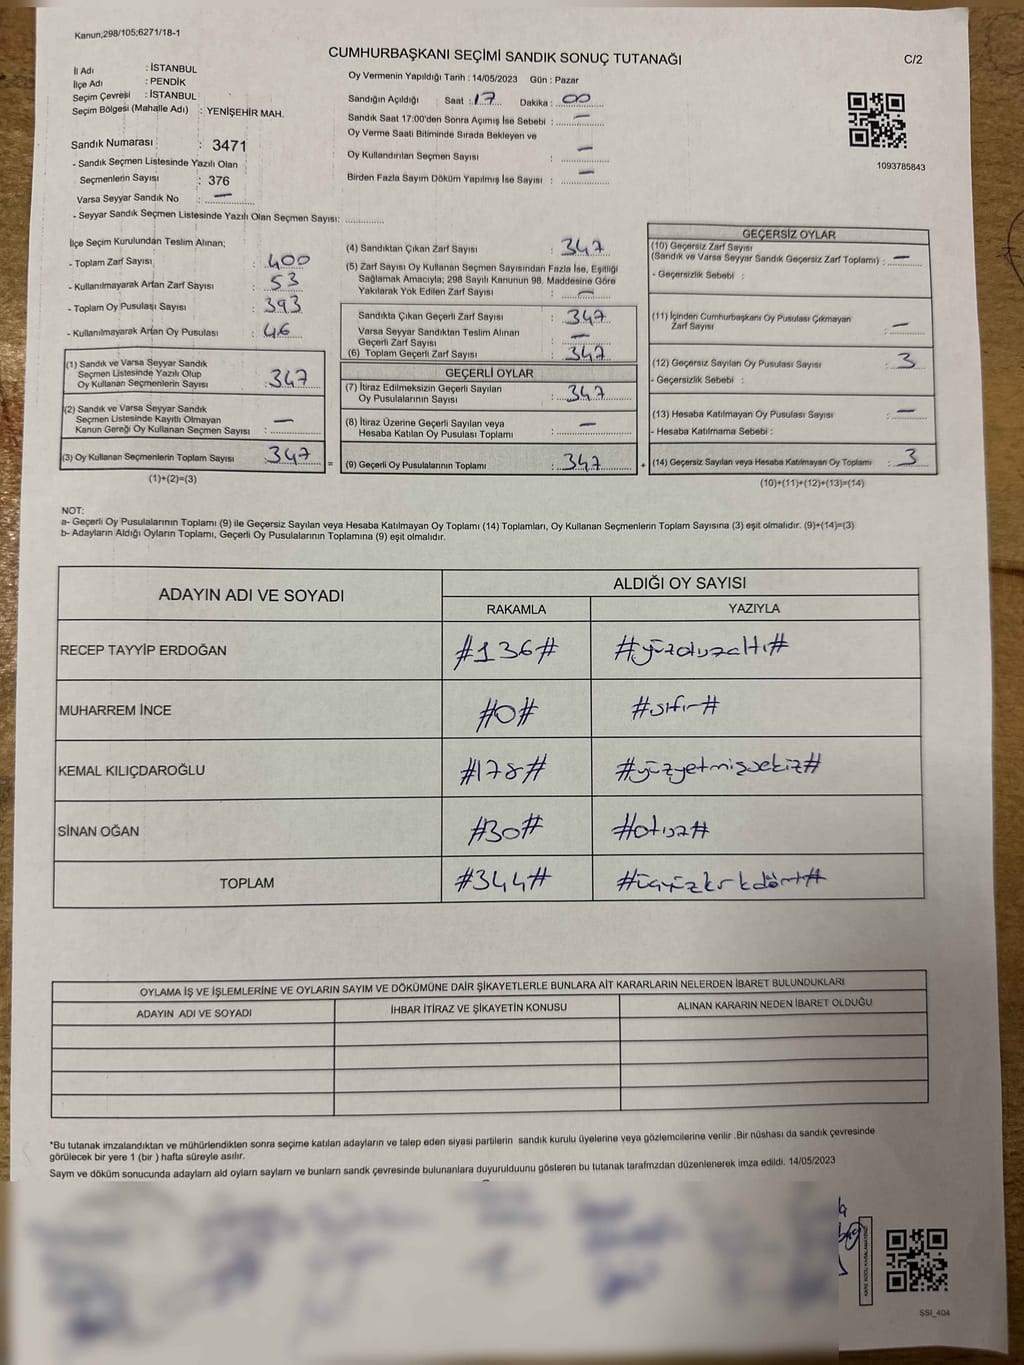 Kanun;298/105;6271/18-1
CUMHURBAŞKANI SEÇİMİ SANDIK SONUÇ TUTANAĞI
C/2
İl Adı : İSTANBUL
İlçe Adı : PENDİK
Seçim Çevresi : İSTANBUL
Seçim Bölgesi (Mahalle Adı) : YENİŞEHİR MAH.
Sandık Numarası : 3471
- Sandık Seçmen Listesinde Yazılı Olan
Seçmenlerin Sayısı : 376
Varsa Seyyar Sandık No : —
- Seyyar Sandık Seçmen Listesinde Yazılı Olan Seçmen Sayısı: ............
Oy Vermenin Yapıldığı Tarih : 14/05/2023 Gün : Pazar
Sandığın Açıldığı Saat : 17 Dakika : 00
Sandık Saat 17:00'den Sonra Açımış İse Sebebi : —
Oy Verme Saati Bitiminde Sırada Bekleyen ve
Oy Kullandırılan Seçmen Sayısı : —
Birden Fazla Sayım Döküm Yapılmış İse Sayısı : —
1093785843
İlçe Seçim Kurulundan Teslim Alınan;
- Toplam Zarf Sayısı : 400
- Kullanılmayarak Artan Zarf Sayısı : 53
- Toplam Oy Pusulası Sayısı : 393
- Kullanılmayarak Artan Oy Pusulası : 46
(1) Sandık ve Varsa Seyyar Sandık
Seçmen Listesinde Yazılı Olup
Oy Kullanan Seçmenlerin Sayısı : 347
(2) Sandık ve Varsa Seyyar Sandık
Seçmen Listesinde Kayıtlı Olmayan
Kanun Gereği Oy Kullanan Seçmen Sayısı : —
(3) Oy Kullanan Seçmenlerin Toplam Sayısı : 347 =
(1)+(2)=(3)
(4) Sandıktan Çıkan Zarf Sayısı : 347
(5) Zarf Sayısı Oy Kullanan Seçmen Sayısından Fazla İse, Eşitliği
Sağlamak Amacıyla; 298 Sayılı Kanunun 98. Maddesine Göre
Yakılarak Yok Edilen Zarf Sayısı : —
Sandıkta Çıkan Geçerli Zarf Sayısı : 347
Varsa Seyyar Sandıktan Teslim Alınan
Geçerli Zarf Sayısı : —
(6) Toplam Geçerli Zarf Sayısı : 347
GEÇERLİ OYLAR
(7) İtiraz Edilmeksizin Geçerli Sayılan
Oy Pusulalarının Sayısı : 347
(8) İtiraz Üzerine Geçerli Sayılan veya
Hesaba Katılan Oy Pusulası Toplamı : —
(9) Geçerli Oy Pusulalarının Toplamı : 347 +
GEÇERSİZ OYLAR
(10) Geçersiz Zarf Sayısı
(Sandık ve Varsa Seyyar Sandık Geçersiz Zarf Toplamı) : —
- Geçersizlik Sebebi :
(11) İçinden Cumhurbaşkanı Oy Pusulası Çıkmayan
Zarf Sayısı : —
(12) Geçersiz Sayılan Oy Pusulası Sayısı : 3
- Geçersizlik Sebebi :
(13) Hesaba Katılmayan Oy Pusulası Sayısı : —
- Hesaba Katılmama Sebebi :
(14) Geçersiz Sayılan veya Hesaba Katılmayan Oy Toplamı : 3
(10)+(11)+(12)+(13)=(14)
NOT:
a- Geçerli Oy Pusulalarının Toplamı (9) ile Geçersiz Sayılan veya Hesaba Katılmayan Oy Toplamı (14) Toplamları, Oy Kullanan Seçmenlerin Toplam Sayısına (3) eşit olmalıdır. (9)+(14)=(3)
b- Adayların Aldığı Oyların Toplamı, Geçerli Oy Pusulalarının Toplamına (9) eşit olmalıdır.
ADAYIN ADI VE SOYADI ALDIĞI OY SAYISI
RAKAMLA YAZIYLA
RECEP TAYYİP ERDOĞAN #136# #yüzotuzaltı#
MUHARREM İNCE #0# #sıfır#
KEMAL KILIÇDAROĞLU #178# #yüzyetmişsekiz#
SİNAN OĞAN #30# #otuz#
TOPLAM #344# #üçyüzkırkdört#
OYLAMA İŞ VE İŞLEMLERİNE VE OYLARIN SAYIM VE DÖKÜMÜNE DAİR ŞİKAYETLERLE BUNLARA AİT KARARLARIN NELERDEN İBARET BULUNDUKLARI
ADAYIN ADI VE SOYADI İHBAR İTİRAZ VE ŞİKAYETİN KONUSU ALINAN KARARIN NEDEN İBARET OLDUĞU
*Bu tutanak imzalandıktan ve mühürlendikten sonra seçime katılan adayların ve talep eden siyasi partilerin sandık kurulu üyelerine veya gözlemcilerine verilir .Bir nüshası da sandık çevresinde
görülecek bir yere 1 (bir ) hafta süreyle asılır.
Saym ve döküm sonucunda adaylarn ald oylarn saylarn ve bunlarn sandk çevresinde bulunanlara duyurulduunu gösteren bu tutanak tarafmzdan düzenlenerek imza edildi. 14/05/2023
SSI_404